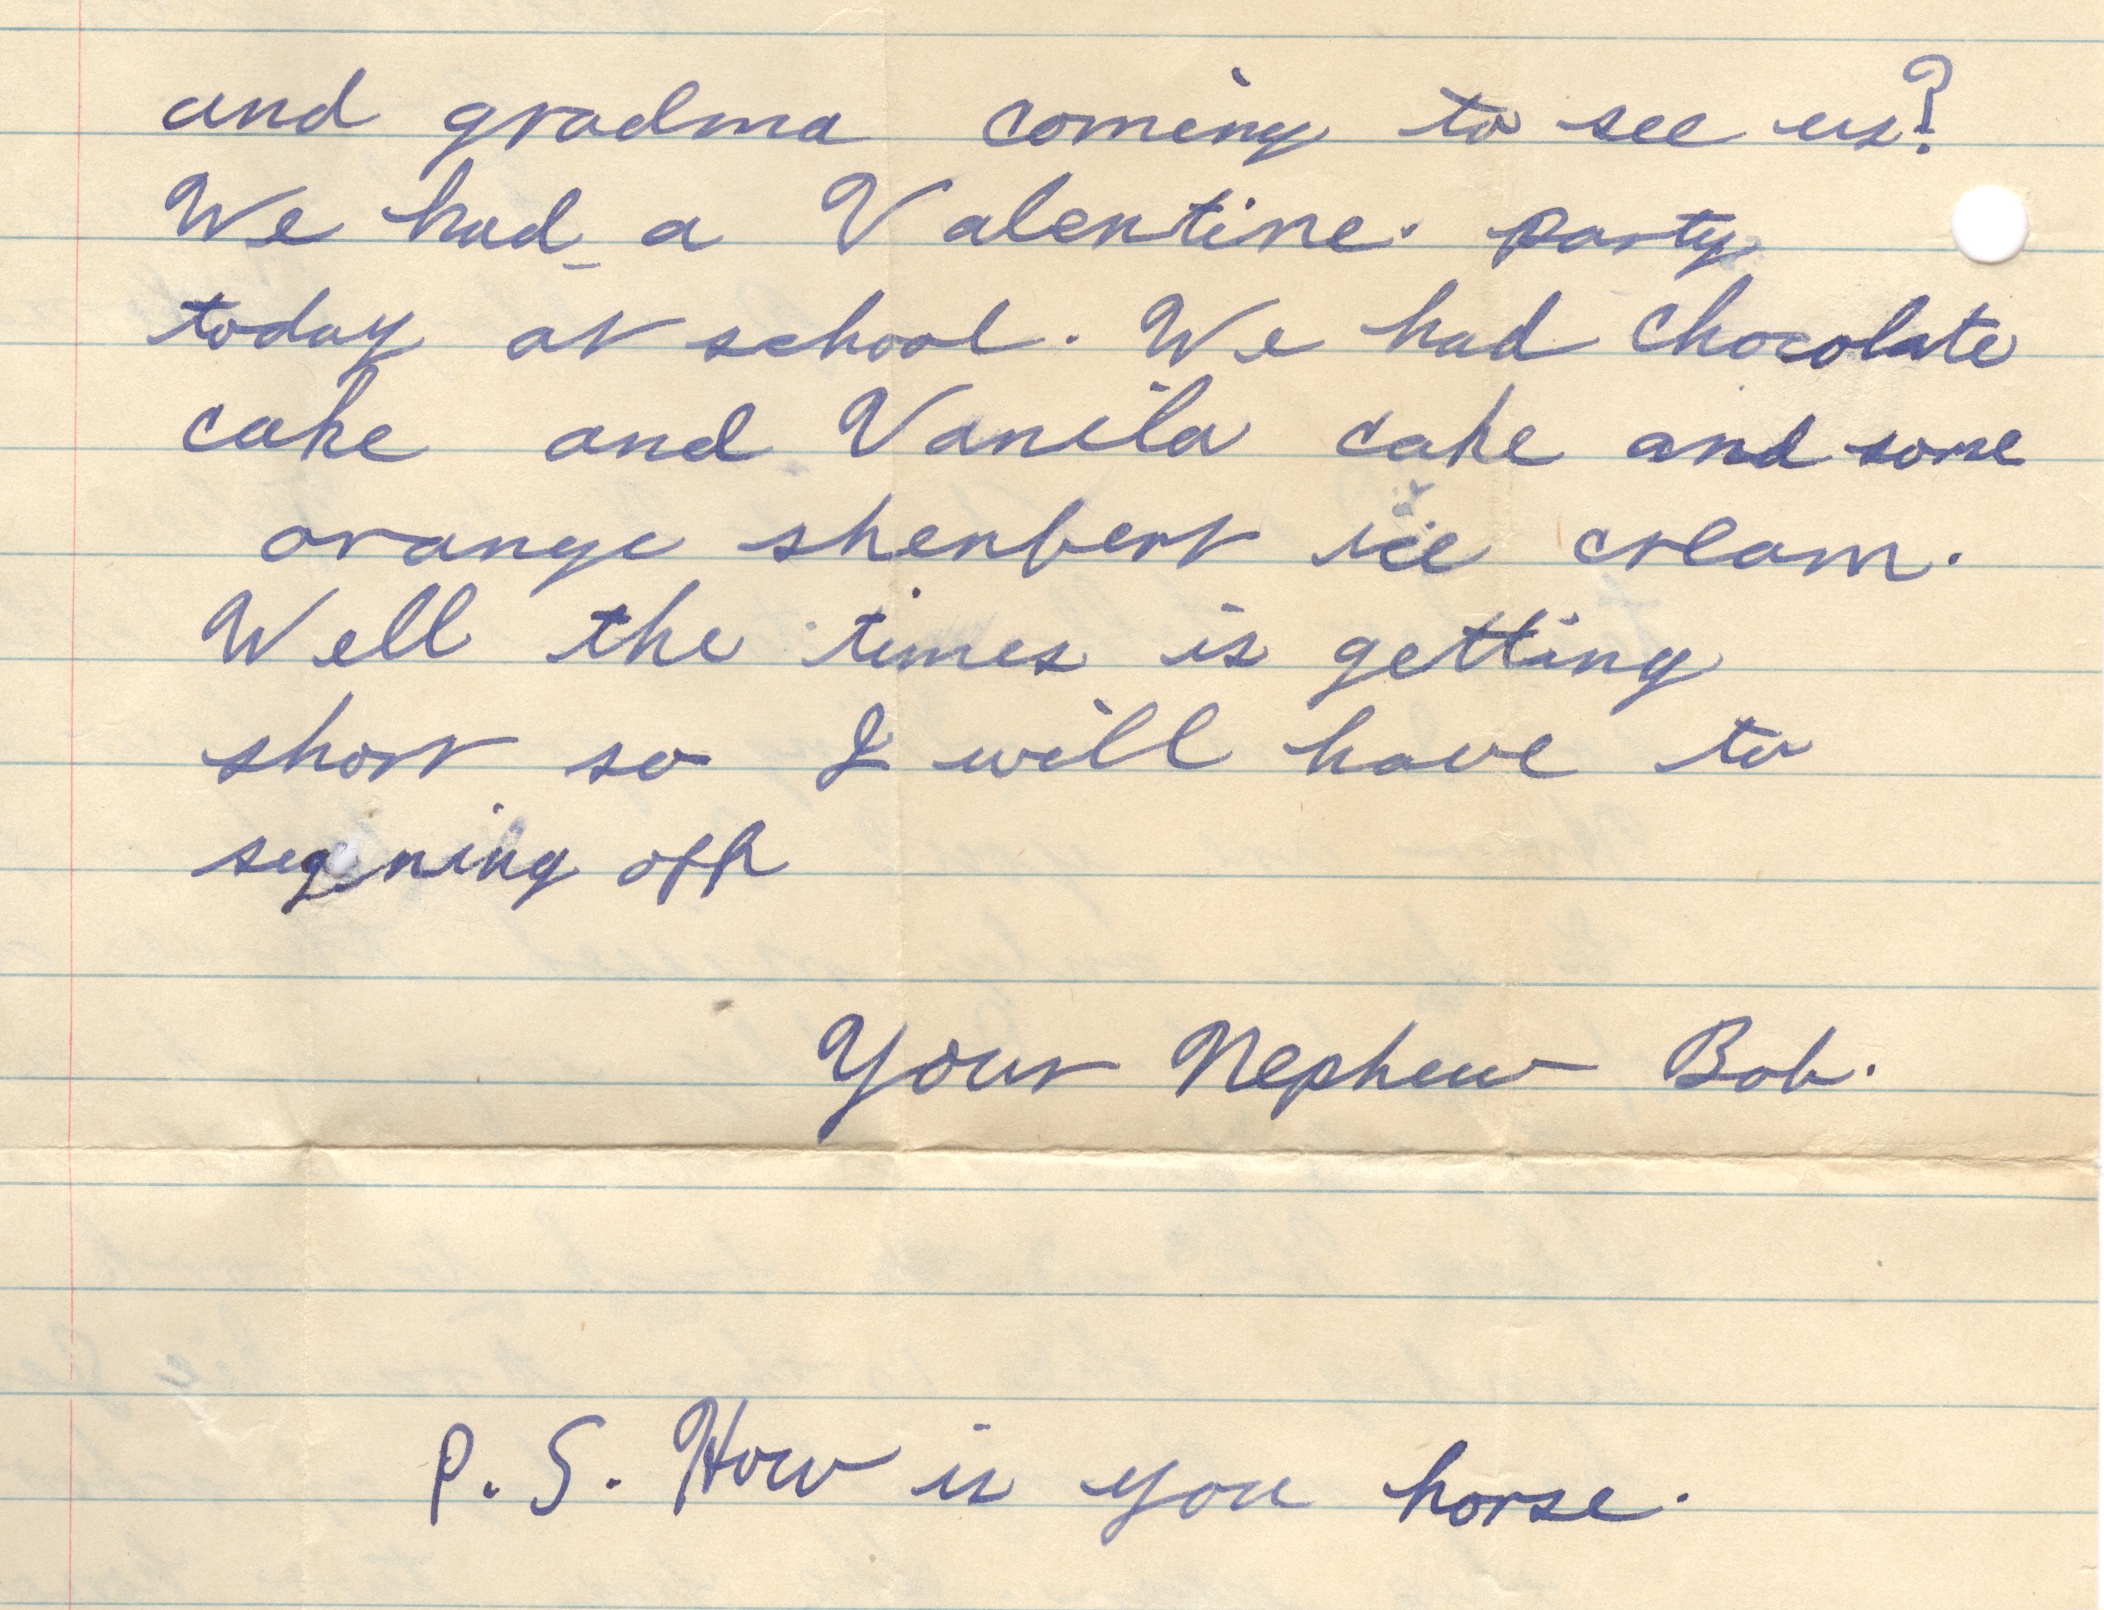 and gradma coming to see us?
We had a Valentine. party
today at school. We had chocolate
cake and Vanila cake and some
orange shenbert ice cream.
Well the times is getting
short so I will have to
segning off
Your Nephew Bob.
P. S. How is you horse.